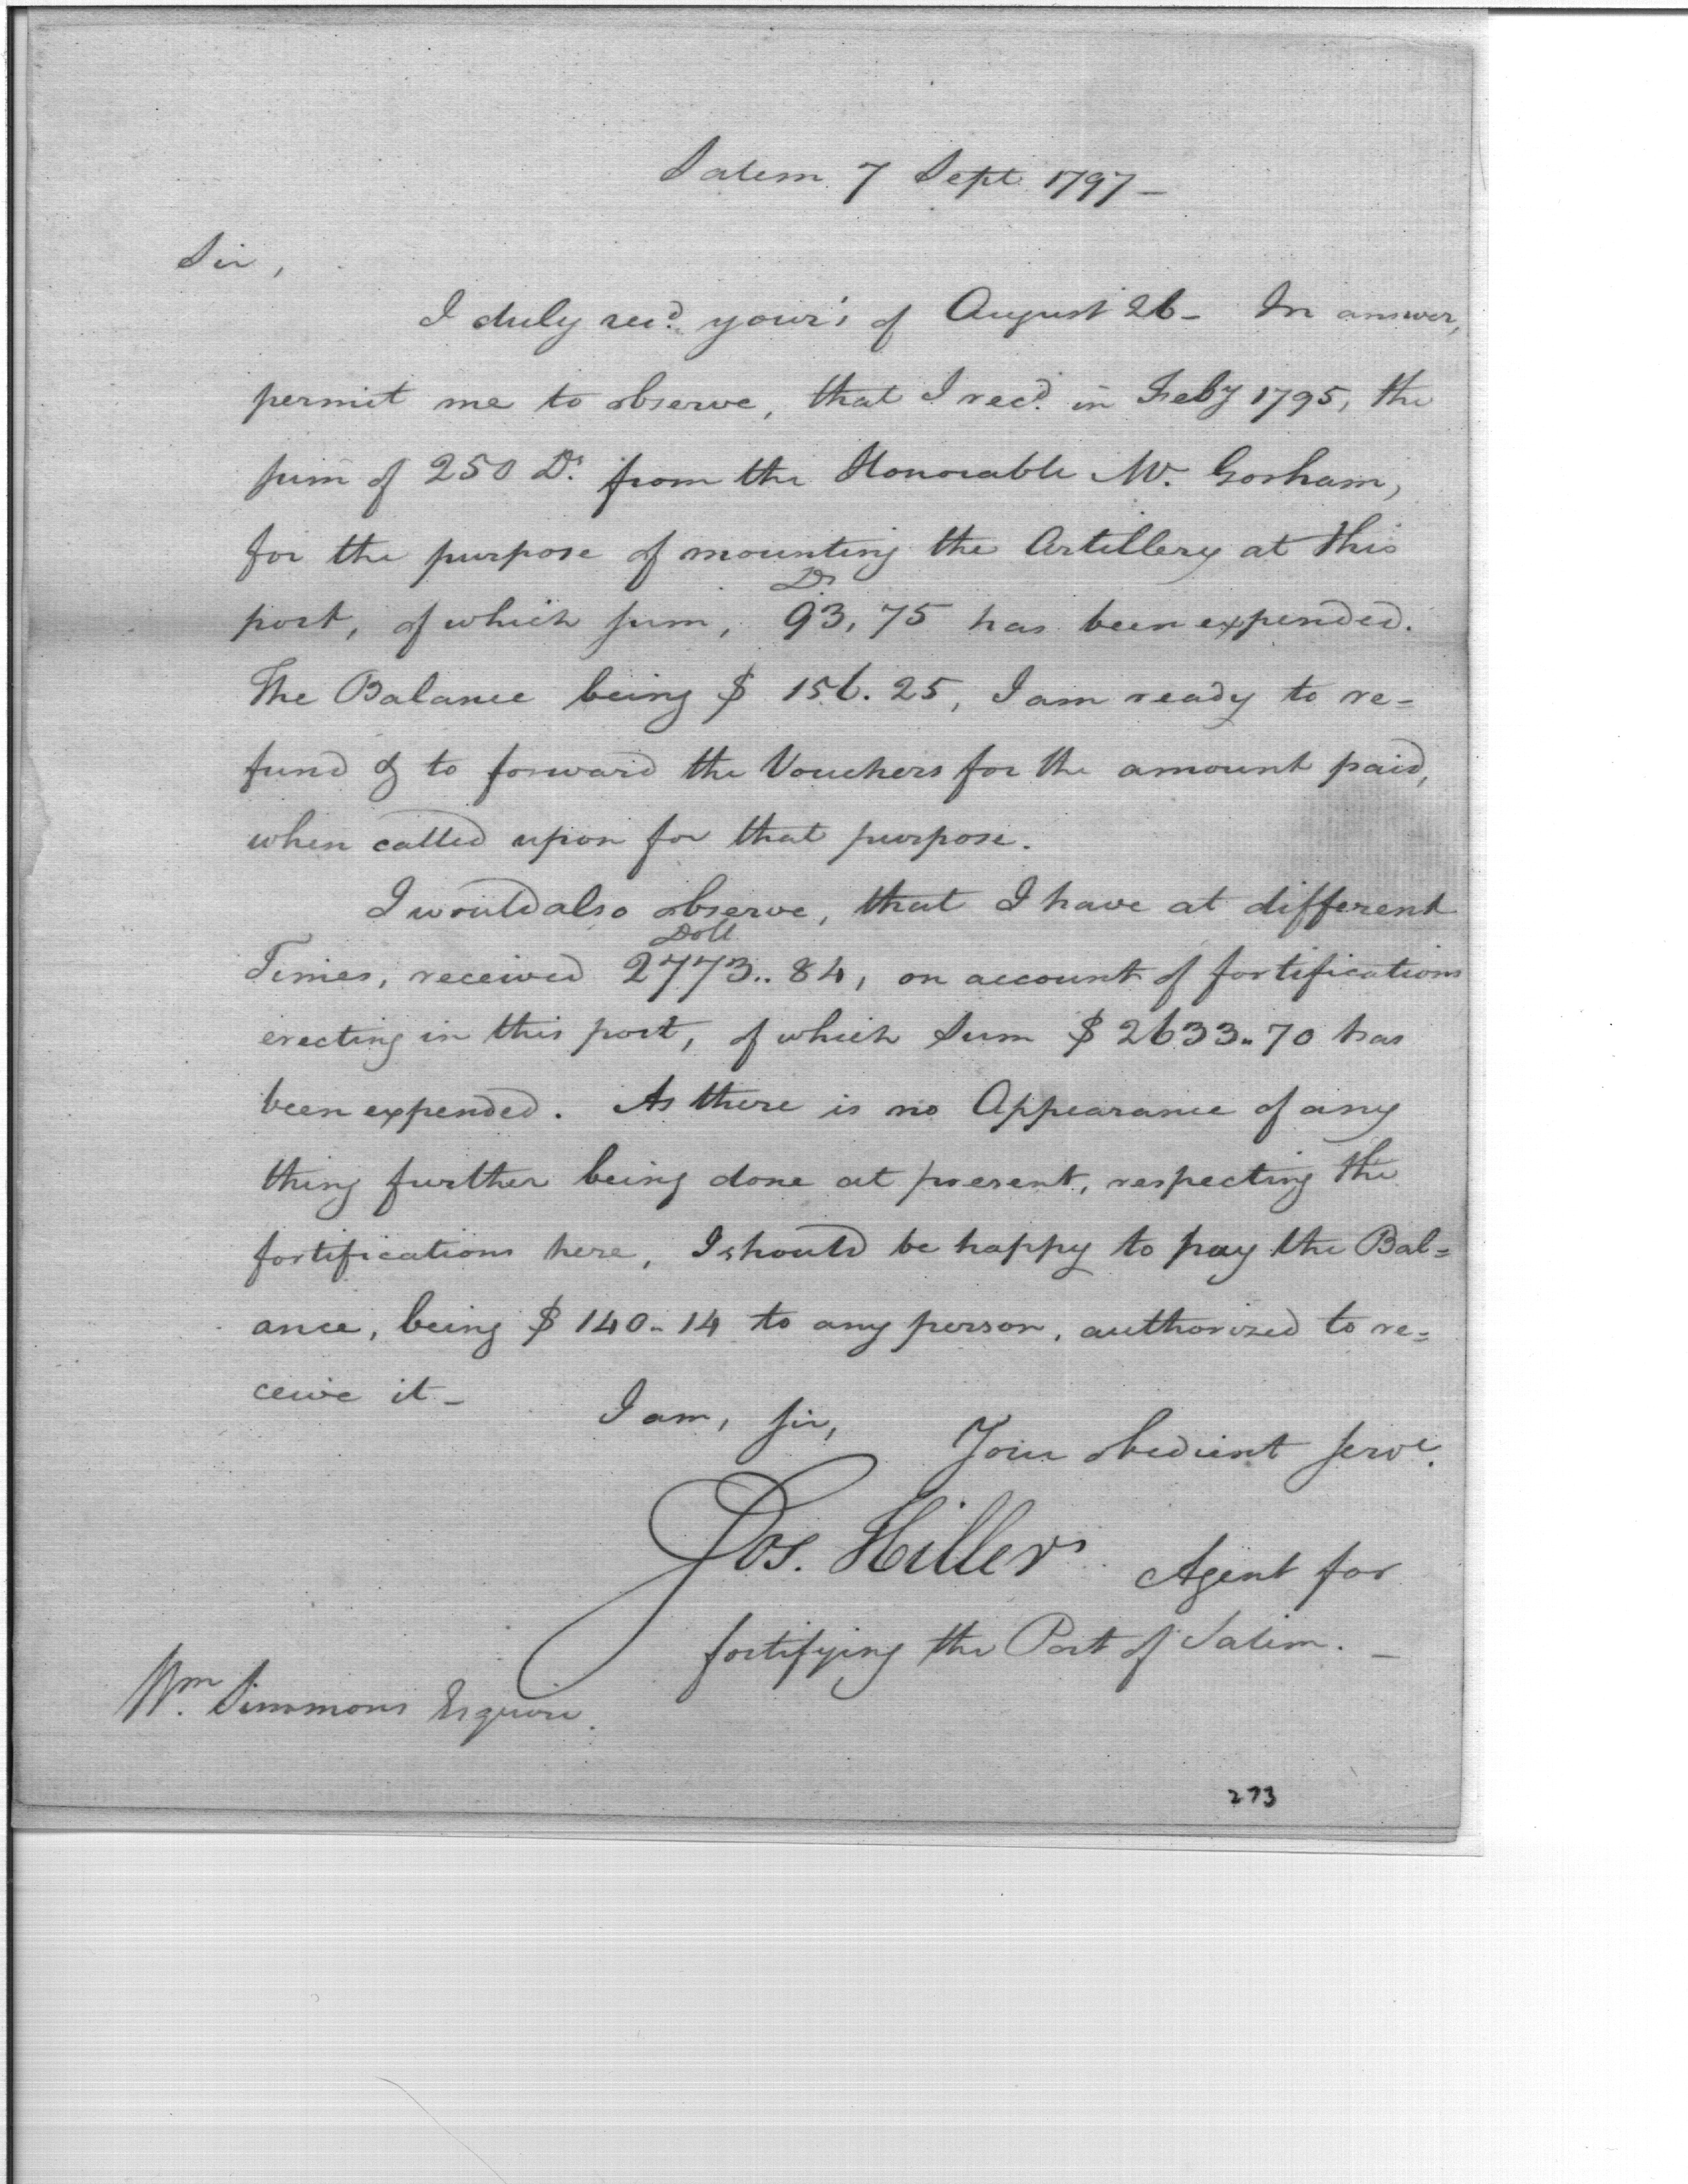 Salem 7 Sept 1797 –
Sir,
I duly rec'd. your's of August 26 – In answer,
permit me to observe, that I rec'd. in Feby 1795, the
sum of 250 Ds. from the Honorable Mr. Gorham,
for the purpose of mounting the Artillery at this
Ds
port, of which sum, 93,75 has been expended.
The Balance being $ 156.25, I am ready to re=
fund & to forward the Vouchers for the amount paid,
when called upon for that purpose.
I would also observe, that I have at different
Doll
Times, received 2773..84, on account of fortifications
erecting in this port, of which Sum $ 2633..70 has
been expended. As there is no Appearance of any
thing further being done at present, respecting the
fortifications here, I should be happy to pay the Bal=
ance, being $ 140-14 to any person, authorized to re=
ceive it –
I am, sir,
Your obedient servt.
Jos. Hiller
Agent for
fortifying the Port of Salem. –
Wm. Simmons Esquire.
273